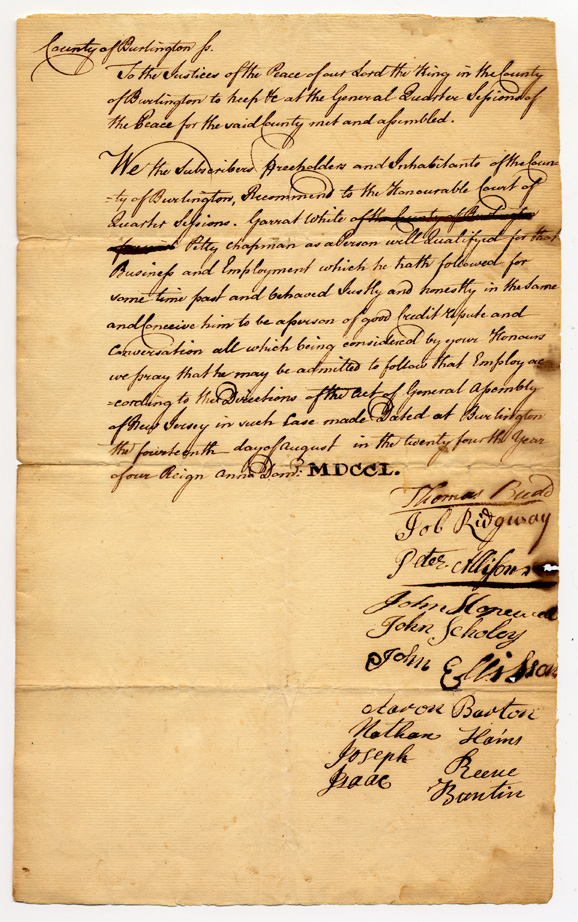 County of Burlington ss.
To the Justices of the Peace of our Lord the King in the County
of Burlington to keep &c at the General Quarter Sessions of
the Peace for the said County met and assembled.
We the Subscribers Freeholders and Inhabitants of the Coun-
-ty of Burlington, Recommend to the Honourable Court of
Quarter Sessions. Garrat White of the County of Burlington
Petty chapman as a Person well Qualifyed for that
Business and Employment which he hath followed for
some time past and behaved Justly and honestly in the same
and Conceive him to be a person of good Credit repute and
Conversation all which being considered by your Honours
we pray that he may be admitted to follow that Employ ac
-cording to the Directions of the Act of General Assembly
of New Jersey in such Case made Dated at Burlington
the fourteenth day of August in the twenty fourth Year
of our Reign Anna Dom: MDCCL.
Thomas Budd
Job Ridgway
Peter Allison
John
John Scholey
John Ellisson
Aaron Barton
Nathan Hains
Joseph Reeve
Isaac Buntin